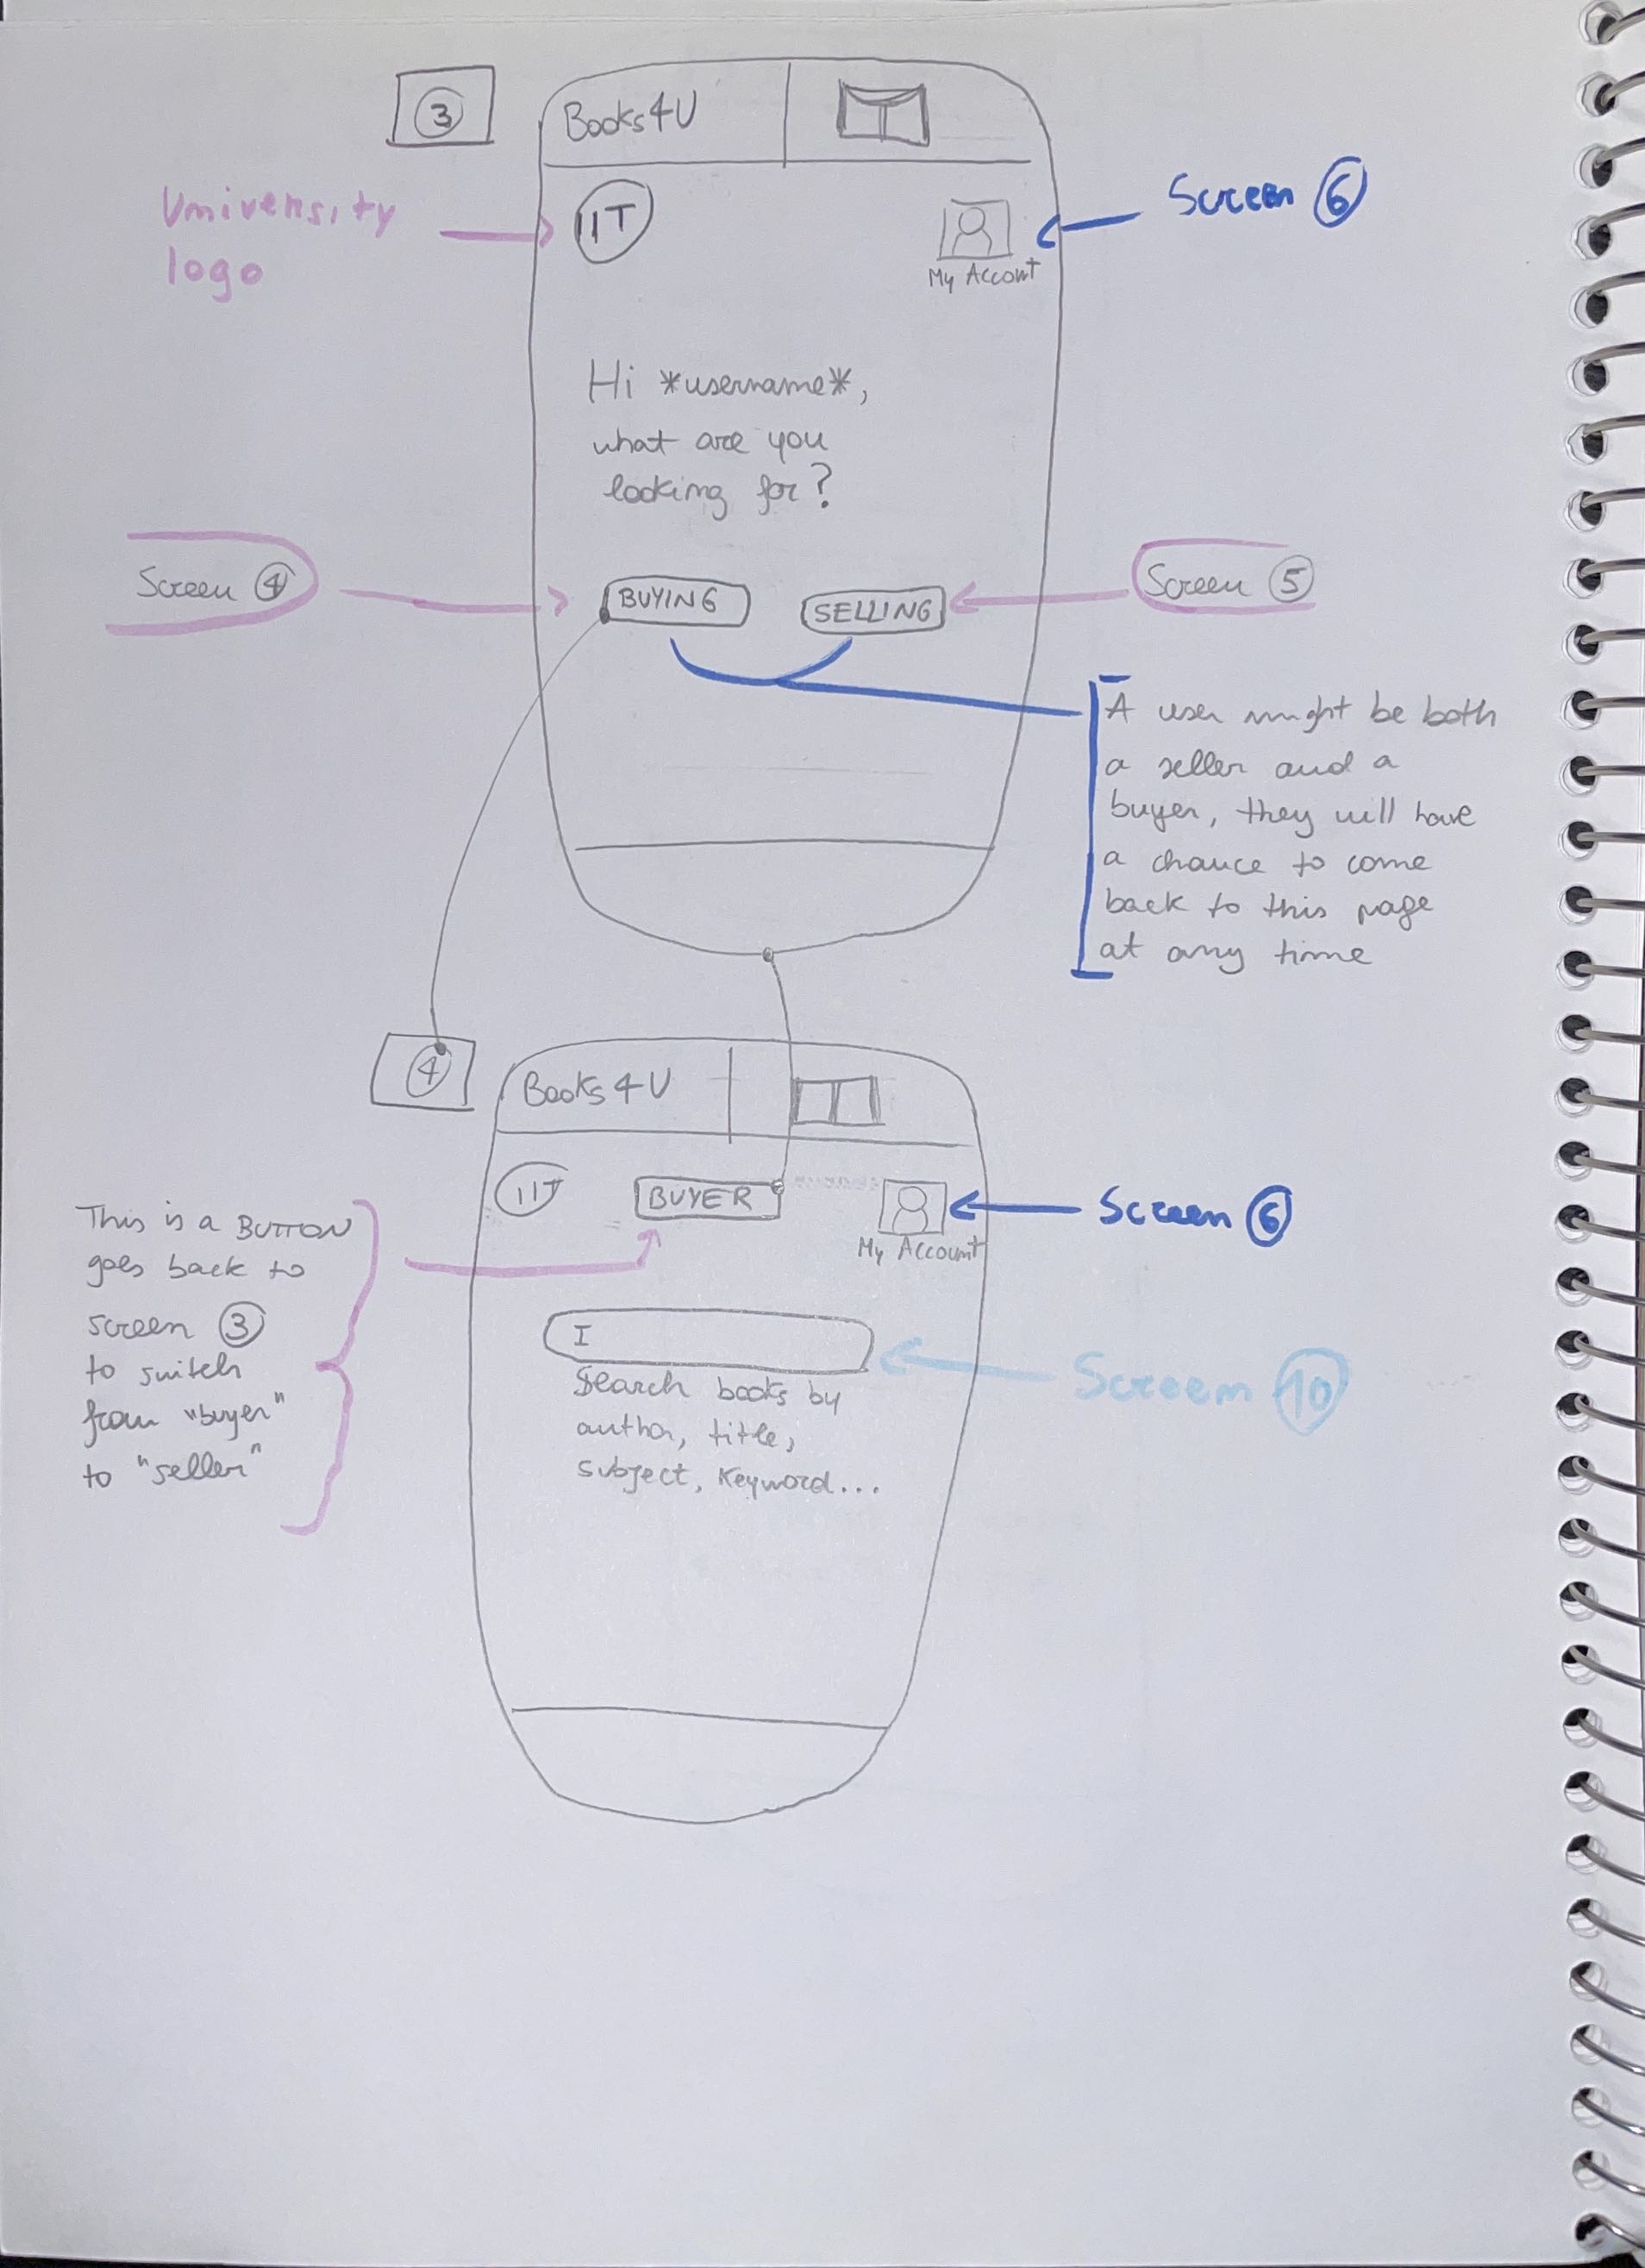 3
Books4U
University
logo
IIT
My Account
Screen 6
Hi *username*,
what are you
looking for?
Screen 4
BUYING
SELLING
Screen 5
A user might be both
a seller and a
buyer, they will have
a chance to come
back to this page
at any time
4
Books4U
IIT
BUYER
My Account
Screen 6
This is a BUTTON
goes back to
screen 3
to switch
from "buyer"
to "seller"
I
Search books by
author, title,
subject, keyword...
Screen 10